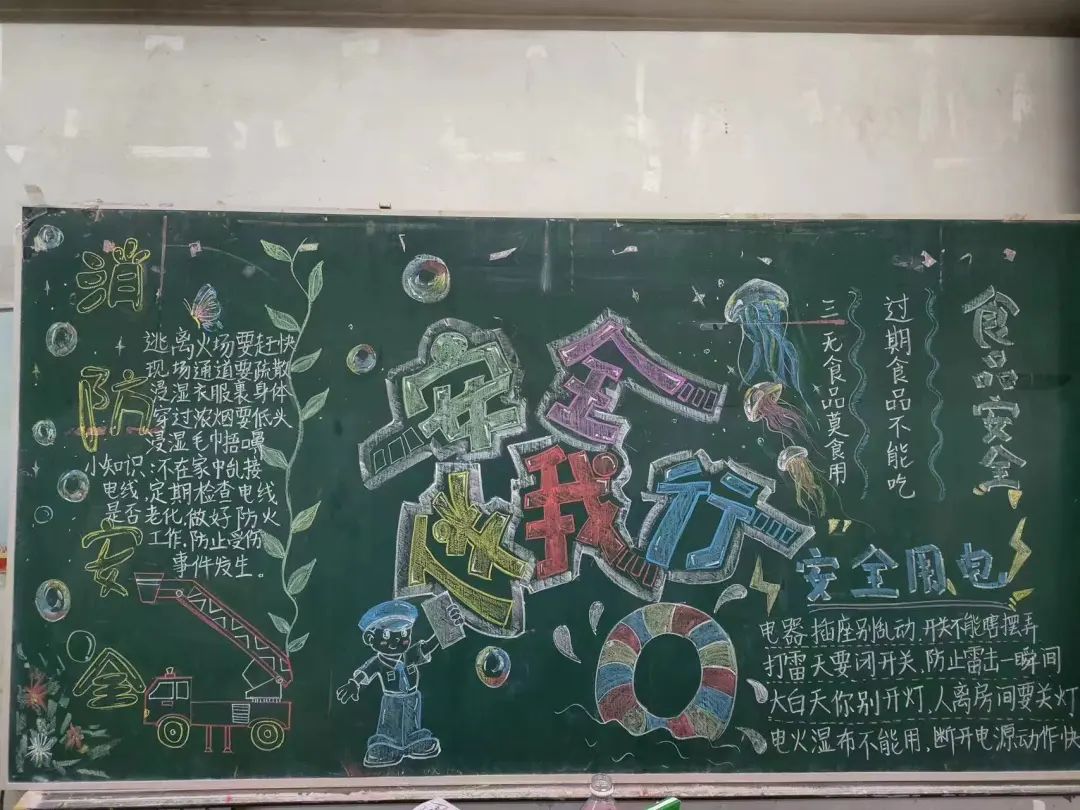 消防安全
逃离火场要赶快
现场通道要疏散
浸湿衣服裹身体
穿过浓烟要低头
浸湿毛巾捂嘴鼻
小知识:不在家中乱接
电线.定期检查电线
是否老化,做好防火
工作,防止受伤
事件发生。
安全
伴我行
食品安全
过期食品不能吃
三无食品莫食用
安全用电
电器插座别乱动.开关不能瞎摆弄
打雷天要闭开关.防止雷击一瞬间
大白天你别开灯.人离房间要关灯
电火湿布不能用.断开电源动作快